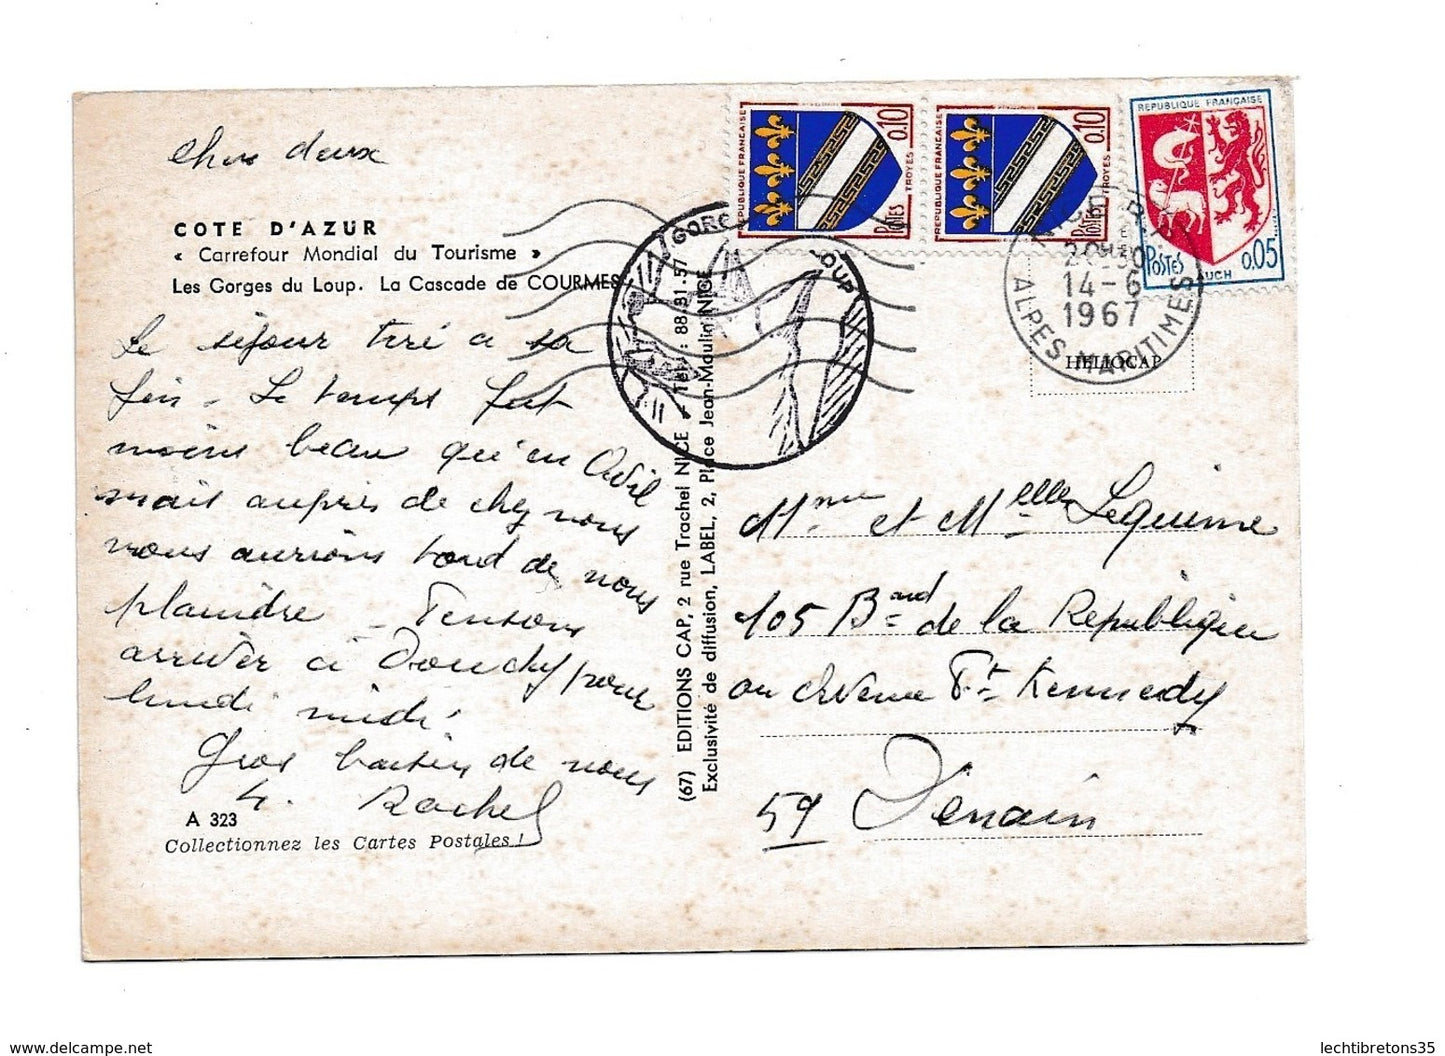 Chers deux
COTE D'AZUR
« Carrefour Mondial du Tourisme »
Les Gorges du Loup. La Cascade de COURMES
Le séjour tire à sa
fin - Le temps fut
moins beau qu'en Avril
mais auprès de chez nous
nous aurions tord de nous
plaindre - Pensons
arriver à Douchy pour
lundi midi.
Gros baisers de nous
4. Rachel
A 323
Collectionnez les Cartes Postales !
(67) EDITIONS CAP, 2 rue Trachel NICE - Tél. : 88.81.57
Exclusivité de diffusion, LABEL, 2, Place Jean-Moulin NICE
GORG LOUP
REPUBLIQUE FRANÇAISE
0.10
POSTES
TROYES
REPUBLIQUE FRANÇAISE
0.10
POSTES
TROYES
REPUBLIQUE FRANÇAISE
POSTES
AUCH
0.05
14-6
1967
ALPES MARITIMES
HELIOCAP
Mme et Melle Lequime
105 Bard de la République
ou Avenue Pt Kennedy
59 Denain
lechtibretons35